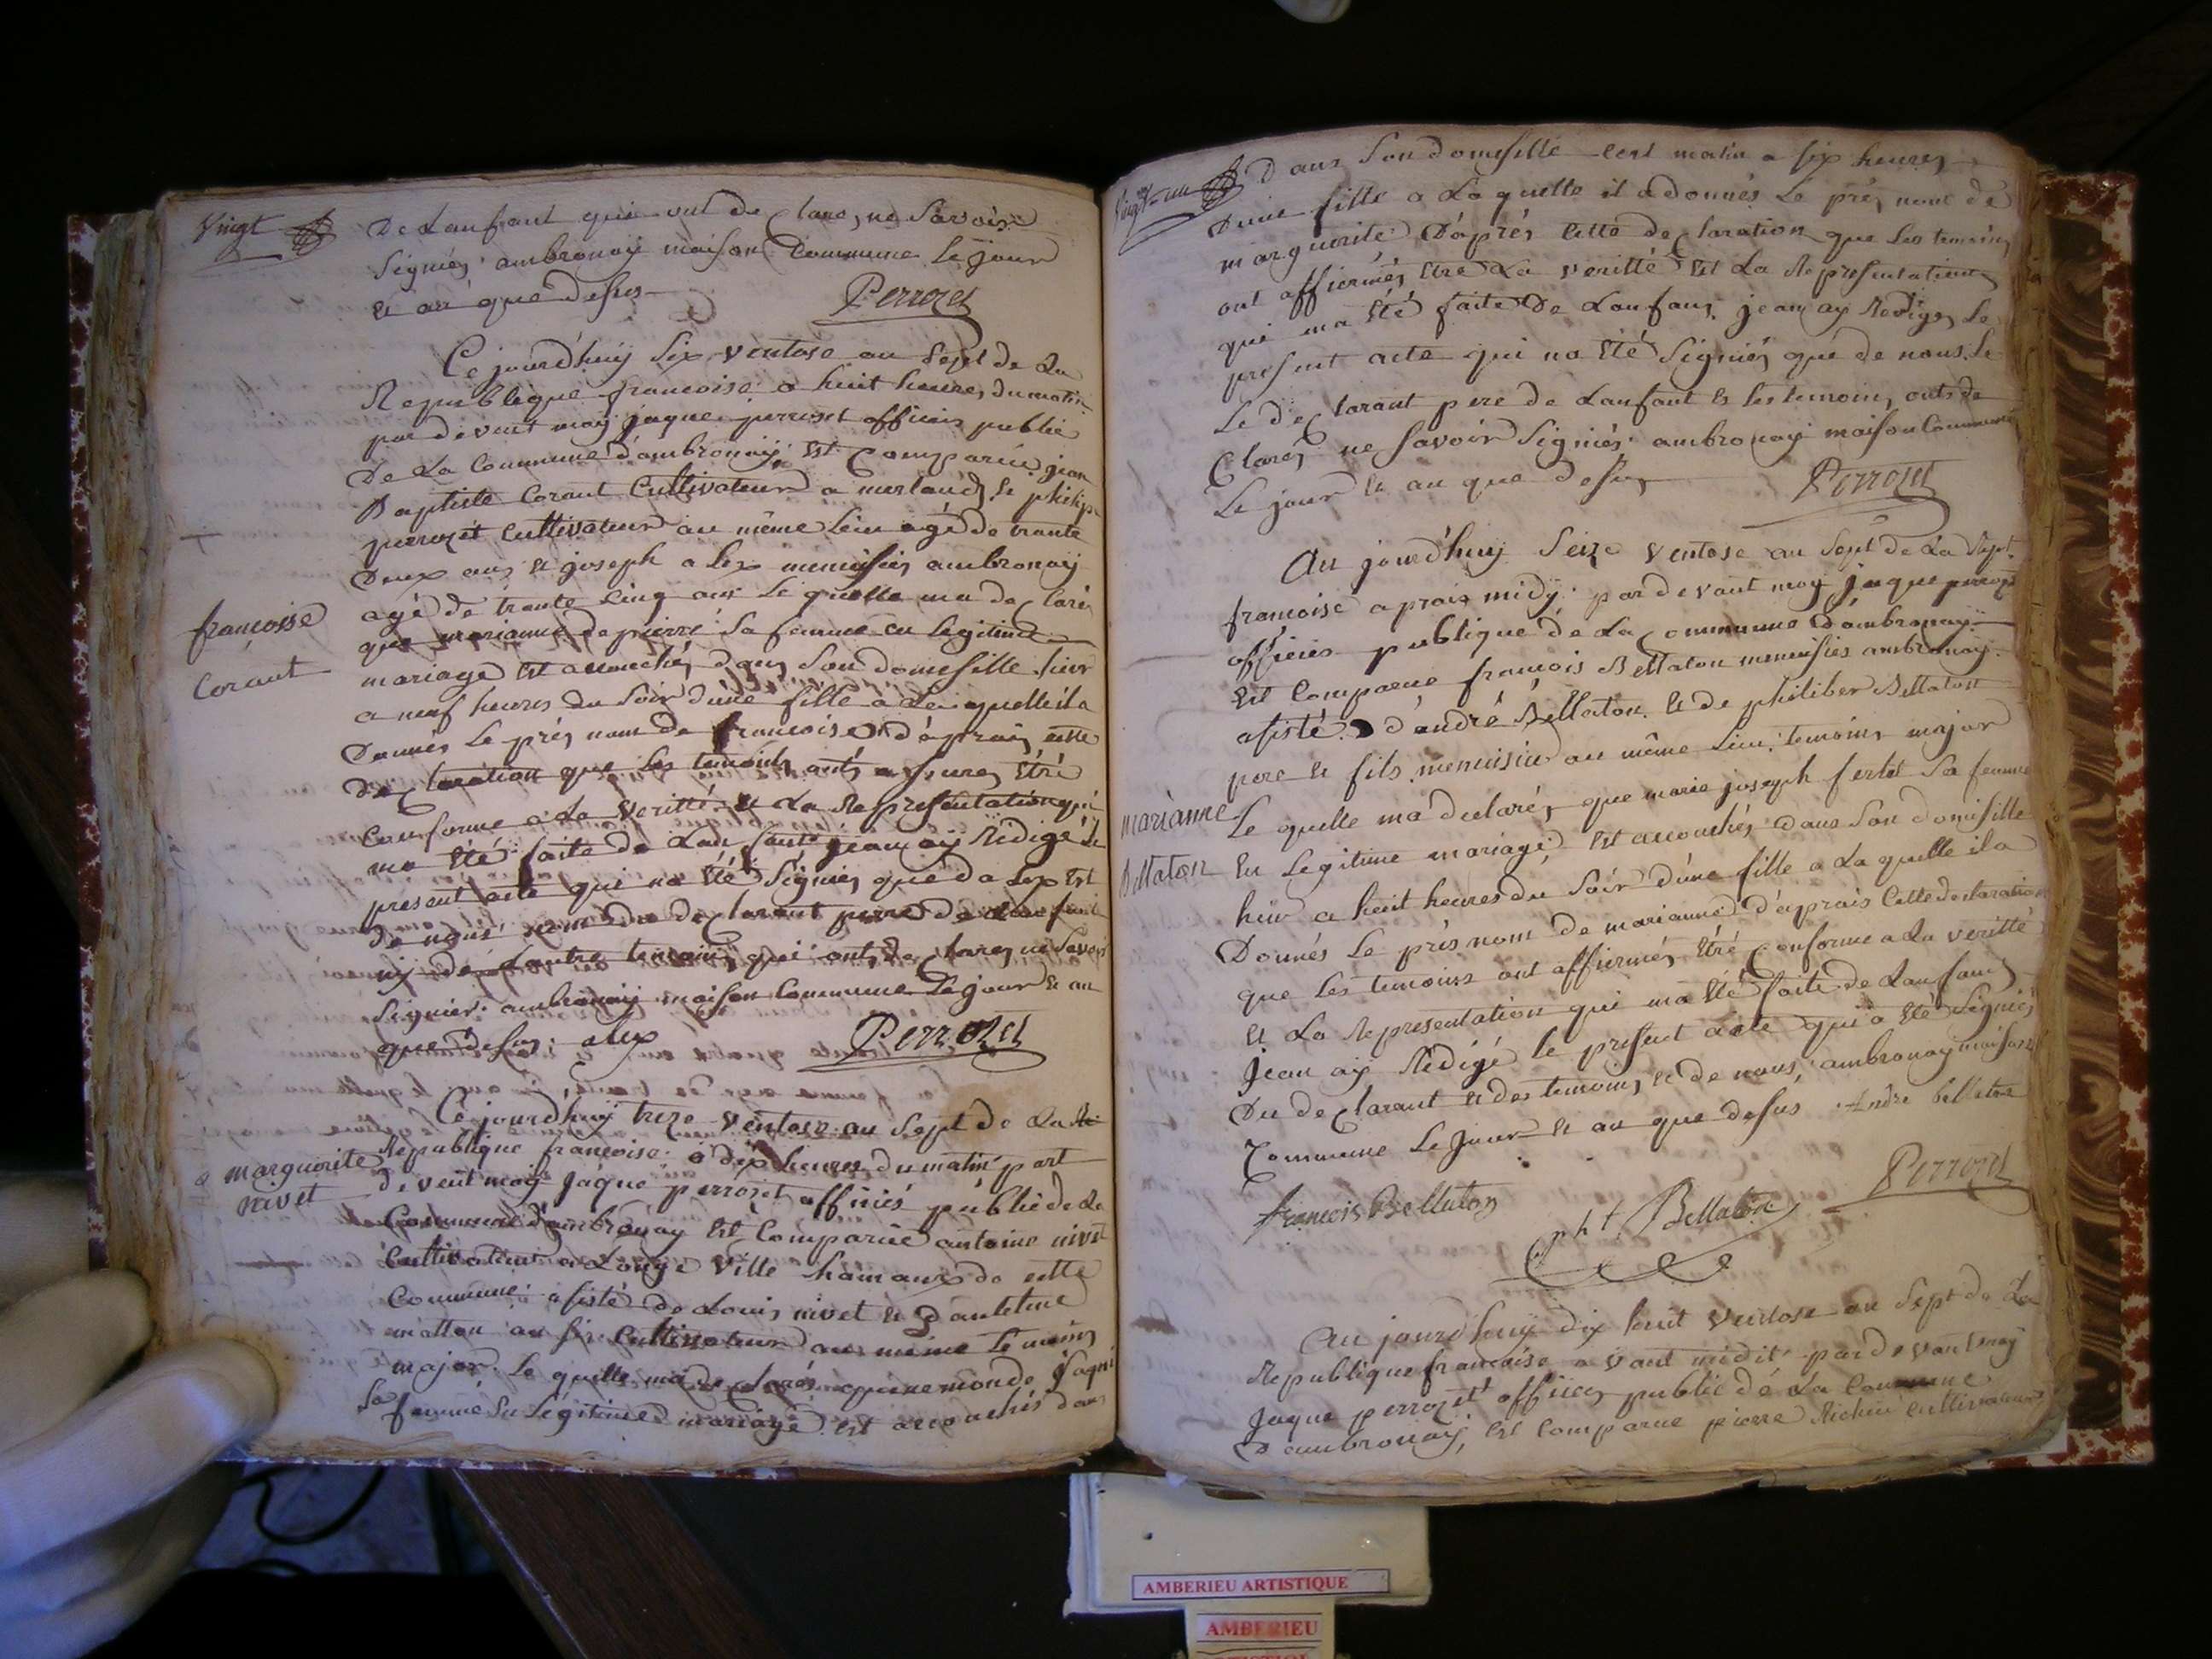 Vingt
De Lanfant qui out de Clare, ne Savoir
Signiés ambronay maison Commune Le jour
Et an que desus
Perrozet
Ce jourd'huy Six ventose an Sept de La
Republique francoise a huit heures du matin
par devent moy jaque perrozet officier public
De La Commune d'ambronay Est Comparue jean
Baptiste Corant Cultivateur a merland, Et philip
perrozet Cultivateur au même Lieu agé de trante
Deux ans Et joseph alex menuisier ambronay
agé de trante Cinq ans Le quelle ma de Clarés
que marianne depierre Sa femme en Legitime
mariage Est acouchés dans Son domesille hier
a neuf heures du Soir d'une fille a La quelle il a
Donnés Le prés nom de francoise d'aprais cette
De Claration que Les temoints onts asures Etre
Conforme a La veritté Et La Representation qui
ma Eté faite de Lanfant jean ay Redigé Le
present acte qui na Eté Signiés que da Lex Et
De nous
ny de Lautre temoint qui onts de Clares ne Savoir
Signier ambronay maison Commune Le jour Et an
que desus alex
Perrozet
francoise
Corant
Ce jourd'huy treze ventose an Sept de La Re
Republique francoise a dix heures du matin part
devent moy jaque perrozet officiés publié de La
Commune d'ambronay Est Comparue antoine nivet
Cultivateur a Longe Ville hamaux de cette
Commune asisté de Louis nivet Et d'antelme
matton au si Cultivateur au même temoins
major Le quelle ma de Clarés reinemonde jaqui
Sa femme En Légitime mariage est acouchés dans
marguerite
nivet
Vingt-un
Dans Son domesille cest matin a six heures
Dune fille a La quelle il a donnés Le prés nome de
marguerite D'aprés Cette de Claration que Les temoins
ont affiermés Etre La veritté Et La Representation
qui ma Eté faite De Lanfans jean ay Rediges Le
present acte qui na Eté Signiés que de nous Le
Le de Clarant pere de Lanfant Et Les temoins, onts de
Clarés ne Savoir Signiés ambronay maison Commune
Le jour Et an que desus
Perrozet
Au jourd'huy Seize ventose an Sept de La Rept.
francoise aprais midy par devant moy jaque perrozet
officier publique de La Commune d'ambronay
Est Comparue francois Bellaton menuisier ambronay
asisté d'andré Bellaton Et de philiber Bellaton
pere Et fils menuisier au même Lieu temoins major
Le quelle ma declarés que marie joseph ferlet Sa femme
En Legitime mariage Est acouchés dans Son domisille
hier a huit heures du Soir d'une fille a La quelle il a
Donnés Le prés nom de marianne d'aprais Cette declaration
que Les temoins ont affiermés Etré Conforme a La veritté
Et La Representation qui ma Eté faite de Lanfans
jean ay Rédigé le present acte qui a Eté Signiés
Du de Clarant Et des temoins, Et de nous ambronay maison
Commune Le jour Et an que desus Andre bellaton
francois Bellaton
pht Bellaton
Perrozet
marianne
Bellaton
Au jourd'huy dix huit Ventose an Sept de La
Republique francaise a vant midit par de vant moy
jaque perrozet officier public dé La Commune
D'ambronay, Est Comparue pierre Richer Cultivateur
AMBERIEU ARTISTIQUE
AMBERIEU